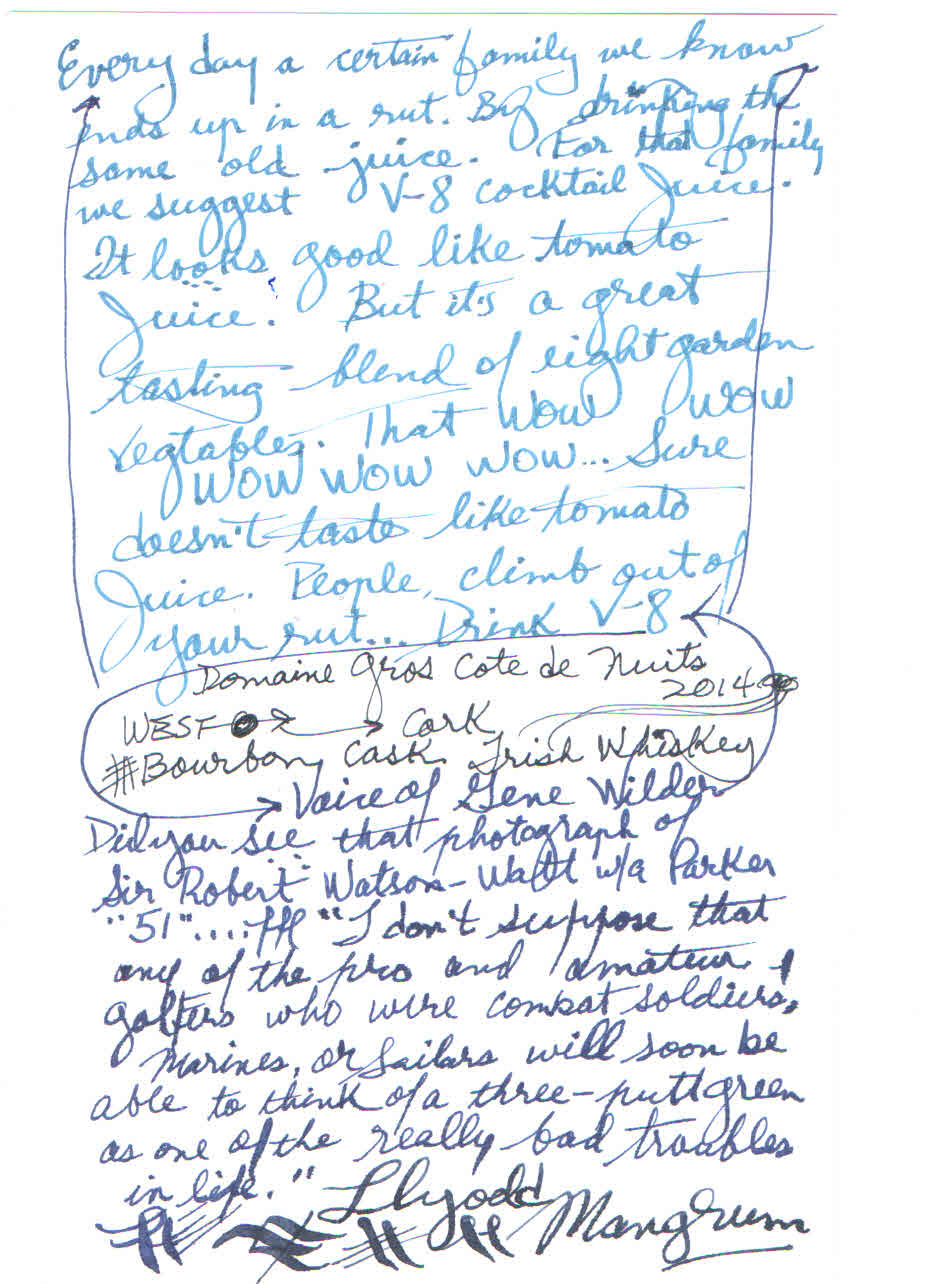 Every day a certain family we know
ends up in a rut. By drinking the
same old juice. For that family
we suggest V-8 cocktail Juice.
It looks good like tomato
Juice. But it's a great
tasting blend of eight garden
vegtables. That WOW WOW
WOW WOW WOW... Sure
doesn't taste like tomato
Juice. People, climb out of
your rut... Drink V-8
Domaine Gros Cote de Nuits
2014
Cork
#Bourbon Cask Irish Whiskey
Voice of Gene Wilder
Did you see that photograph of
Sir Robert Watson-Watt w/a Parker
"51".... "I don't suppose that
any of the pro and amateur
golfers who were combat soldiers,
Marines, or Sailars will soon be
able to think of a three-putt green
as one of the really bad troubles
in life." Llyodd
Mangrum